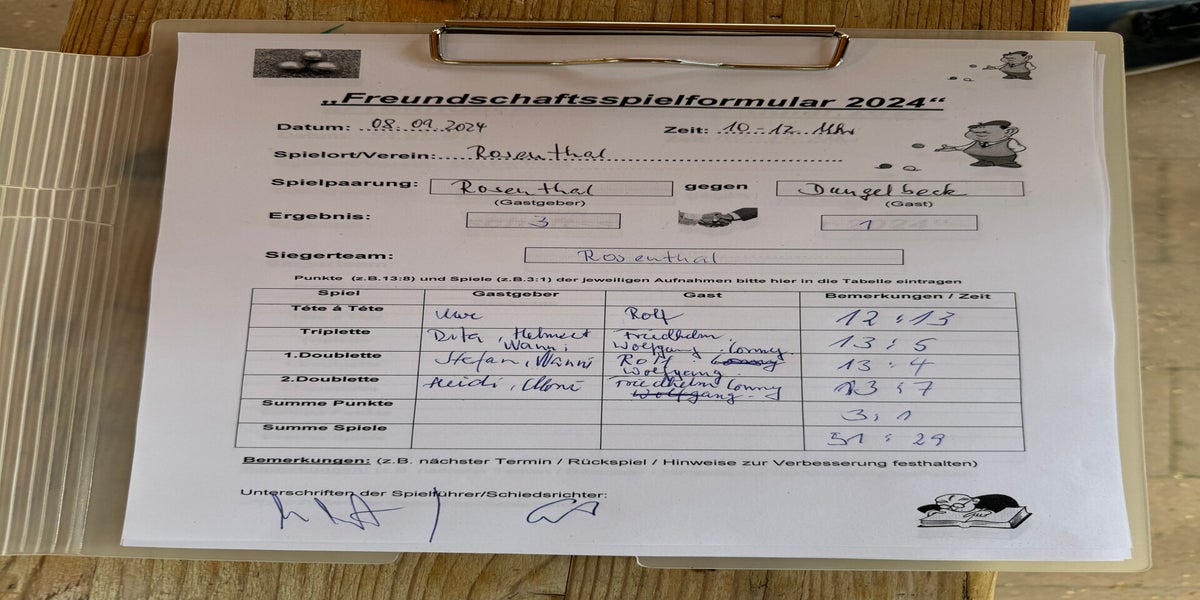 „Freundschaftsspielformular 2024“
Datum: 08.09.2024 Zeit: 10-12 Uhr
Spielort/Verein: Rosenthal
Spielpaarung: Rosenthal gegen Dungelbeck
(Gastgeber) (Gast)
Ergebnis: 3 1
Siegerteam: Rosenthal
Punkte (z.B.13:8) und Spiele (z.B.3:1) der jeweiligen Aufnahmen bitte hier in die Tabelle eintragen
Spiel Gastgeber Gast Bemerkungen / Zeit
Téte á Téte Uwe Rolf 12:13
Triplette Rita, Helmut Wanni Friedhelm Wolfgang Conny 13:5
1.Doublette Stefan, Wanni Rolf Wolfgang 13:4
2.Doublette Heidi, Friedhelm Conny Wolfgang 13:7
Summe Punkte 3:1
Summe Spiele 51:29
Bemerkungen: (z.B. nächster Termin / Rückspiel / Hinweise zur Verbesserung festhalten)
Unterschriften der Spielführer/Schiedsrichter: